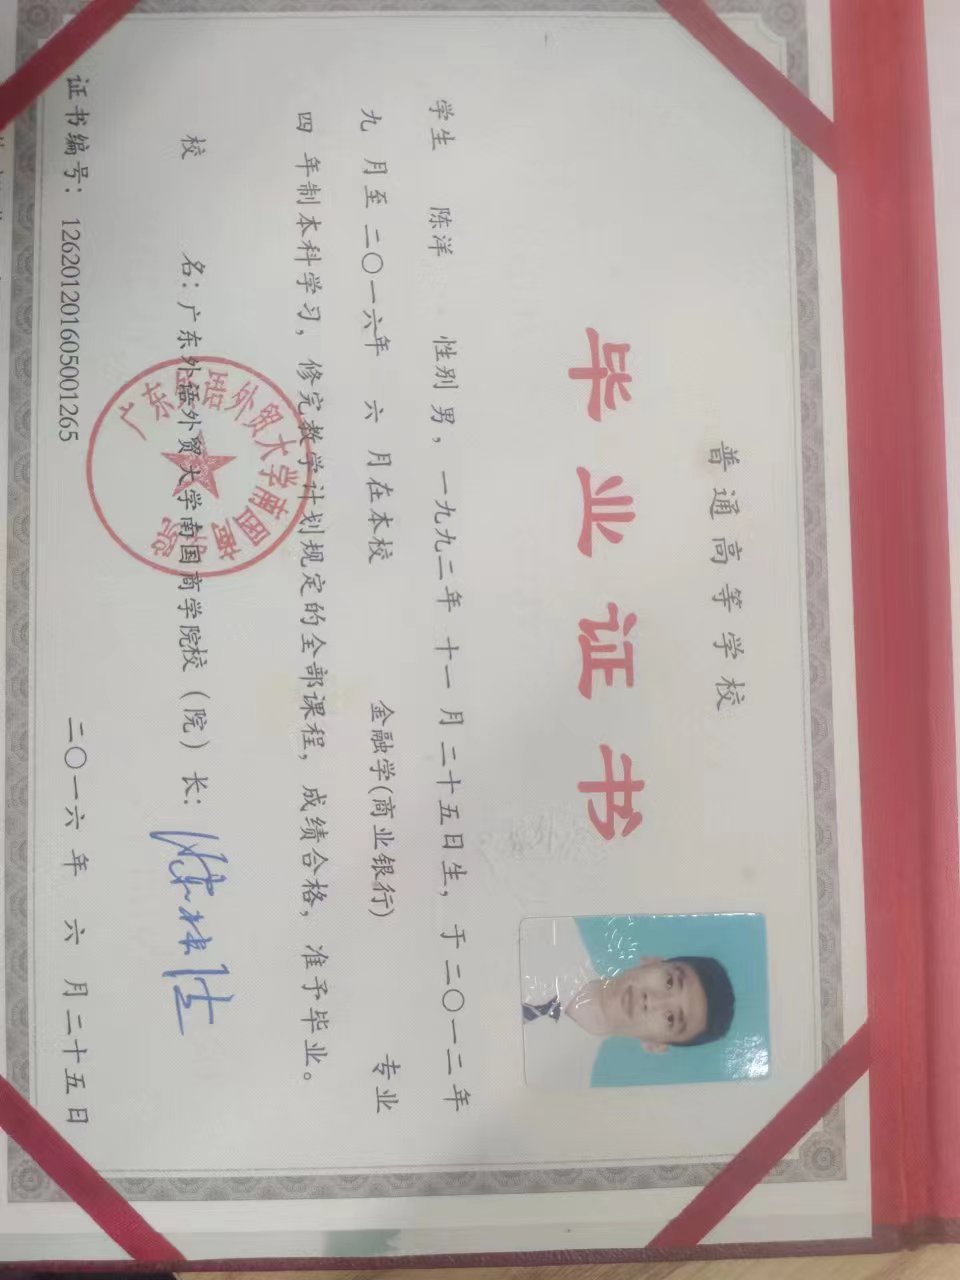 普通高等学校
毕业证书
学生 陈洋 性别 男，一九九二年 十一 月 二十五日生，于二〇一二年
九 月至 二〇一六年 六 月在本校 金融学(商业银行) 专业
四 年制本科学习，修完教学计划规定的全部课程，成绩合格，准予毕业。
校 名：广东外语外贸大学南国商学院 校（院）长：
证书编号：126201201605001265 二〇一六 年 六 月 二十五日
广东外语外贸大学南国商学院